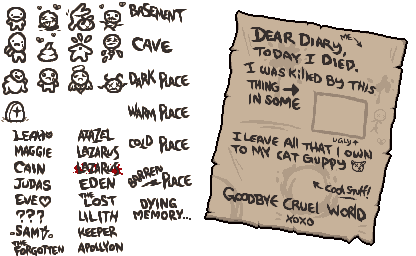 BASEMENT
CAVE
DARK PLACE
WARM PLACE
COLD PLACE
BARREN PLACE
DYING
MEMORY...
LEAH
MAGGIE
CAIN
JUDAS
EVE♡
???
-SAM-
THE
FORGOTTEN
AZAZEL
LAZARUS
LAZARUS
EDEN
THE
LOST
LILITH
KEEPER
APOLLYON
DEAR DIARY,
ME
TODAY I DIED.
I WAS KILLED BY THIS
THING →
IN SOME
UGLY↑
I LEAVE ALL THAT I OWN
TO MY CAT GUPPY
↖ COOL STUFF!
GOODBYE CRUEL WORLD
XOXO